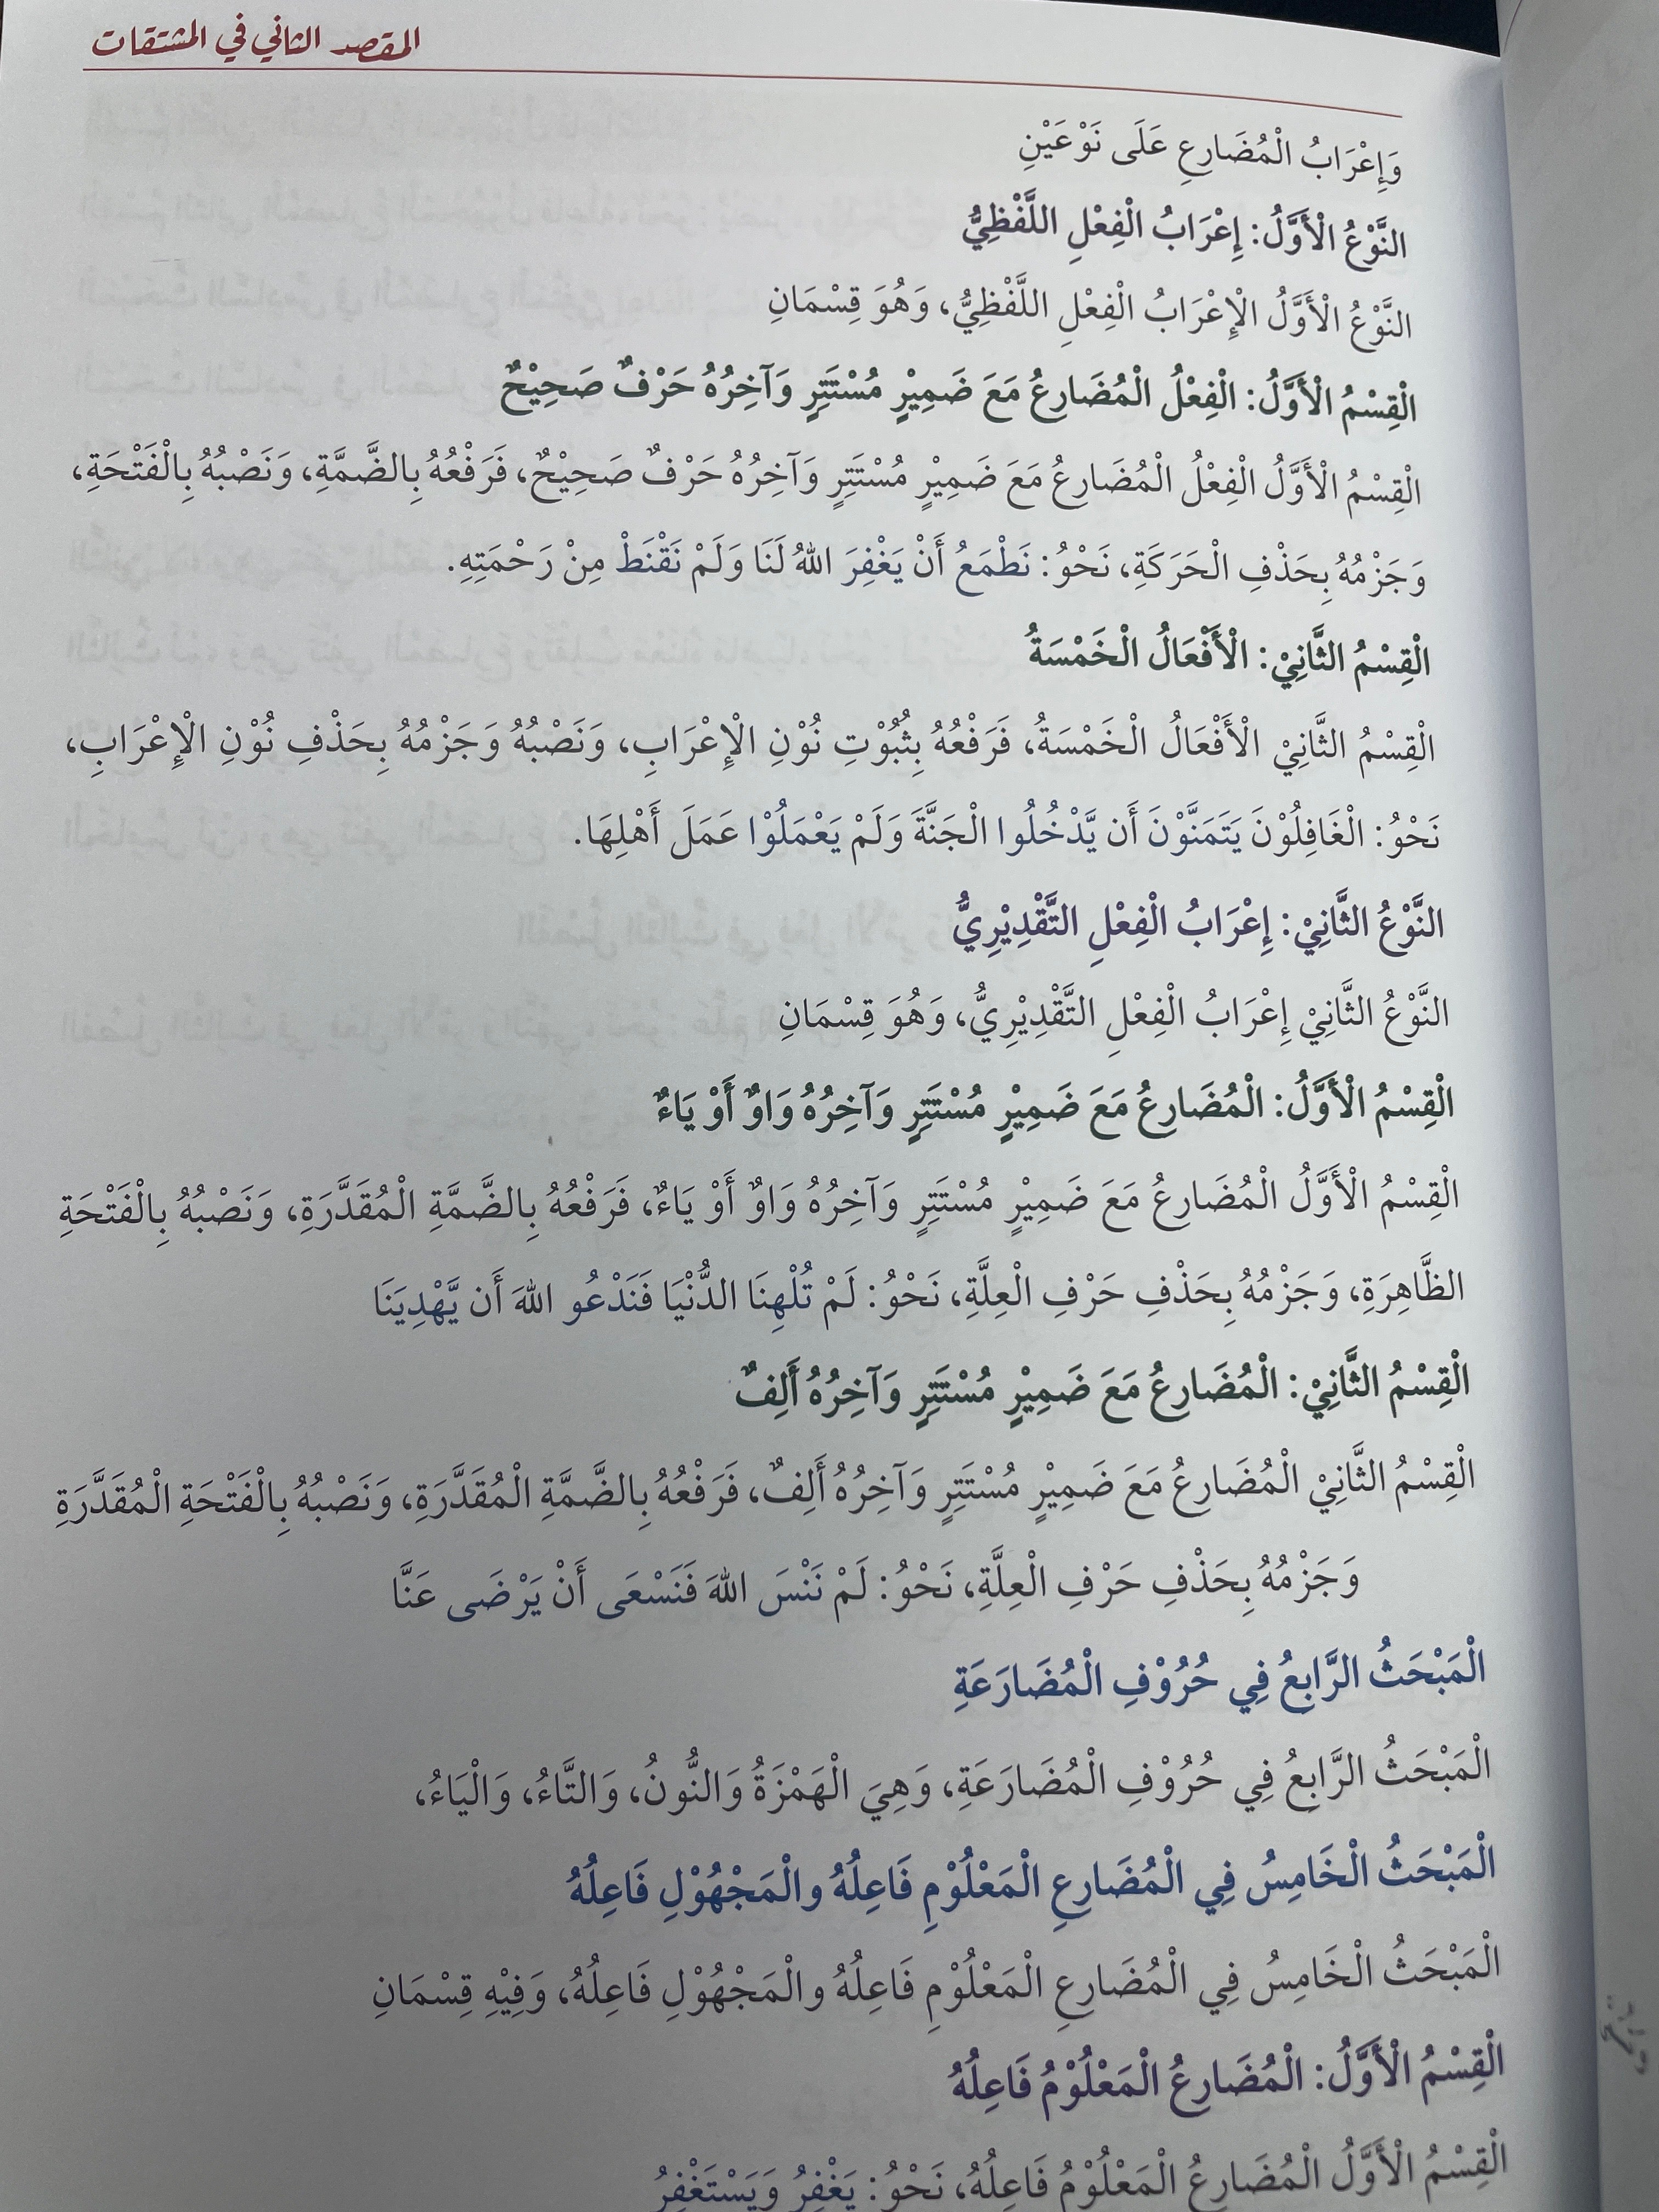 المقصد الثاني في المشتقات
وَإِعْرَابُ الْمُضَارِعِ عَلَى نَوْعَيْنِ
النَّوْعُ الْأَوَّلُ: إِعْرَابُ الْفِعْلِ اللَّفْظِيُّ
النَّوْعُ الْأَوَّلُ الْإِعْرَابُ الْفِعْلِ اللَّفْظِيُّ، وَهُوَ قِسْمَانِ
الْقِسْمُ الْأَوَّلُ: الْفِعْلُ الْمُضَارِعُ مَعَ ضَمِيْرٍ مُسْتَتِرٍ وَآخِرُهُ حَرْفٌ صَحِيْحٌ
الْقِسْمُ الْأَوَّلُ الْفِعْلُ الْمُضَارِعُ مَعَ ضَمِيْرٍ مُسْتَتِرٍ وَآخِرُهُ حَرْفٌ صَحِيْحٌ، فَرَفْعُهُ بِالضَّمَّةِ، وَنَصْبُهُ بِالْفَتْحَةِ،
وَجَزْمُهُ بِحَذْفِ الْحَرَكَةِ، نَحْوُ: نَطْمَعُ أَنْ يَغْفِرَ اللهُ لَنَا وَلَمْ نَقْنَطْ مِنْ رَحْمَتِهِ.
الْقِسْمُ الثَّانِيْ: الْأَفْعَالُ الْخَمْسَةُ
الْقِسْمُ الثَّانِيْ الْأَفْعَالُ الْخَمْسَةُ، فَرَفْعُهُ بِثُبُوْتِ نُوْنِ الْإِعْرَابِ، وَنَصْبُهُ وَجَزْمُهُ بِحَذْفِ نُوْنِ الْإِعْرَابِ،
نَحْوُ: الْغَافِلُوْنَ يَتَمَنَّوْنَ أَن يَّدْخُلُوا الْجَنَّةَ وَلَمْ يَعْمَلُوْا عَمَلَ أَهْلِهَا.
النَّوْعُ الثَّانِيْ: إِعْرَابُ الْفِعْلِ التَّقْدِيْرِيُّ
النَّوْعُ الثَّانِيْ إِعْرَابُ الْفِعْلِ التَّقْدِيْرِيُّ، وَهُوَ قِسْمَانِ
الْقِسْمُ الْأَوَّلُ: الْمُضَارِعُ مَعَ ضَمِيْرٍ مُسْتَتِرٍ وَآخِرُهُ وَاوٌ أَوْ يَاءٌ
الْقِسْمُ الْأَوَّلُ الْمُضَارِعُ مَعَ ضَمِيْرٍ مُسْتَتِرٍ وَآخِرُهُ وَاوٌ أَوْ يَاءٌ، فَرَفْعُهُ بِالضَّمَّةِ الْمُقَدَّرَةِ، وَنَصْبُهُ بِالْفَتْحَةِ
الظَّاهِرَةِ، وَجَزْمُهُ بِحَذْفِ حَرْفِ الْعِلَّةِ، نَحْوُ: لَمْ تُلْهِنَا الدُّنْيَا فَنَدْعُو اللهَ أَن يَّهْدِيَنَا
الْقِسْمُ الثَّانِيْ: الْمُضَارِعُ مَعَ ضَمِيْرٍ مُسْتَتِرٍ وَآخِرُهُ أَلِفٌ
الْقِسْمُ الثَّانِيْ الْمُضَارِعُ مَعَ ضَمِيْرٍ مُسْتَتِرٍ وَآخِرُهُ أَلِفٌ، فَرَفْعُهُ بِالضَّمَّةِ الْمُقَدَّرَةِ، وَنَصْبُهُ بِالْفَتْحَةِ الْمُقَدَّرَةِ
وَجَزْمُهُ بِحَذْفِ حَرْفِ الْعِلَّةِ، نَحْوُ: لَمْ نَنْسَ اللهَ فَنَسْعَى أَنْ يَرْضَى عَنَّا
الْمَبْحَثُ الرَّابِعُ فِي حُرُوْفِ الْمُضَارَعَةِ
الْمَبْحَثُ الرَّابِعُ فِي حُرُوْفِ الْمُضَارَعَةِ، وَهِيَ الْهَمْزَةُ وَالنُّونُ، وَالتَّاءُ، وَالْيَاءُ،
الْمَبْحَثُ الْخَامِسُ فِي الْمُضَارِعِ الْمَعْلُوْمِ فَاعِلُهُ والْمَجْهُوْلِ فَاعِلُهُ
الْمَبْحَثُ الْخَامِسُ فِي الْمُضَارِعِ الْمَعْلُوْمِ فَاعِلُهُ والْمَجْهُوْلِ فَاعِلُهُ، وَفِيْهِ قِسْمَانِ
الْقِسْمُ الْأَوَّلُ: الْمُضَارِعُ الْمَعْلُوْمُ فَاعِلُهُ
الْقِسْمُ الْأَوَّلُ الْمُضَارِعُ الْمَعْلُوْمُ فَاعِلُهُ، نَحْوُ: يَغْفِرُ وَيَسْتَغْفِرُ